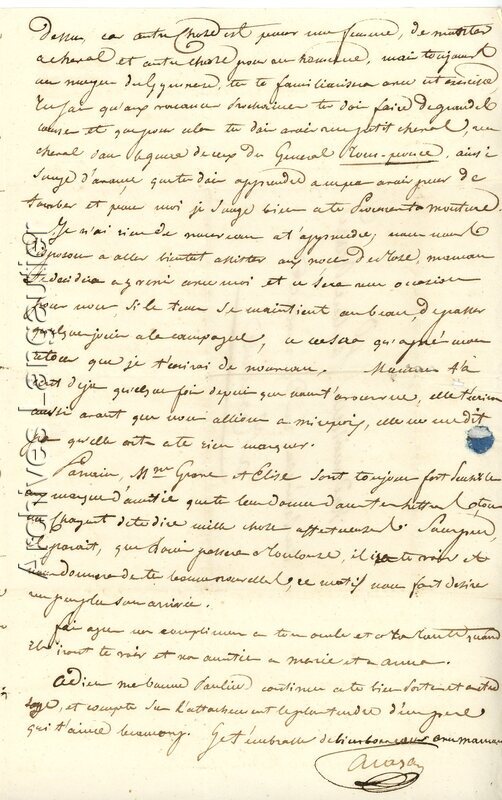 dessus, car autre chose est pour une femme, de monter
a cheval et autre chose pour un homme, mais toujours
au moyen du Gymnase, tu te familiarisera avec cet exercice
tu sais qu'aux vacances prochaines tu dois faire de grandes
courses et que pour cela tu dois avoir un petit cheval, un
cheval dans le genre de ceux du General Tom-pouce, ainsi
songe d'avance que tu dois apprendre a ne pas avoir peur de
tomber et pour moi je songe bien a te monture
Je n'ai rien de nouveau a t'apprendre, nous nous
disposons a aller bientot assister aux noces de Rose, maman
se decidera a y venir avec moi et ce sera une occasion
pour nous, si le tems se maintient au beau, de passer
quelques jours a la campagne, ce ne sera qu'apres mon
retour que je t'ecrirai de nouveau. Maman t'a
ecrit deja quelques fois depuis que, elle t'ecrira
aussi avant que nous allions a mirepoix, elle me dit
qu'elle a te rien marquer.
Parrain, Mme Grane et Elise sont toujours fort sensibles
aux marques d'amitié que tu leur donnes dans tes lettres
me chargent de te dire mille choses affectueuses.
il parait, que passera a Toulouse, il ira te voir et
nous donnera de tes bonnes nouvelles, ce motif nous fait desirer
un peu plus son arrivée.
fais agreer nos complimens a ton oncle et a ta tante quand
ils iront te voir et nos amitiés a marie et a anna.
Adieu ma bonne Pauline continue a te bien porter et a etre
sage, et compte sur l'attachement le plus tendre d'un pere
qui t'aime beaucoup. Je t'embrasse de bien bon coeur avec maman
Archives Lengautier